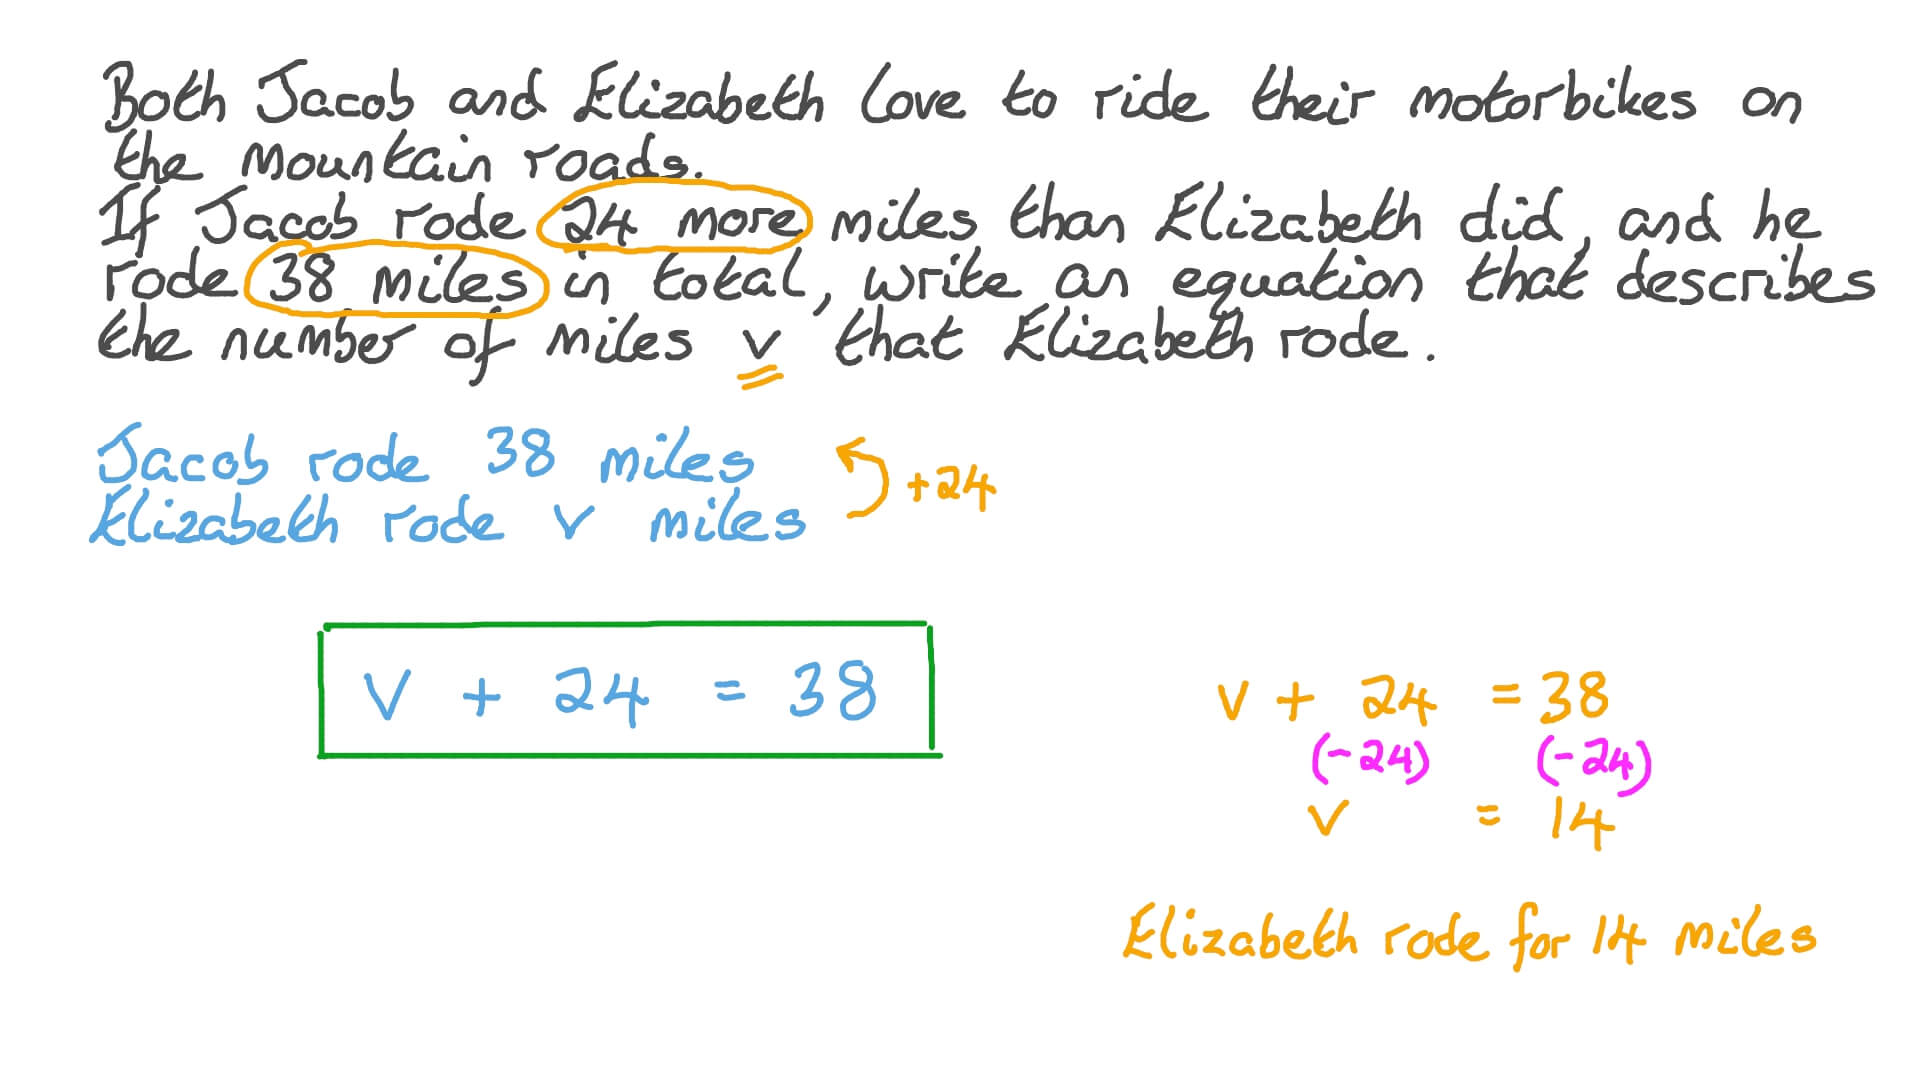 Both Jacob and Elizabeth love to ride their motorbikes on
the mountain roads.
If Jacob rode 24 more miles than Elizabeth did, and he
rode 38 miles in total, write an equation that describes
the number of miles v that Elizabeth rode.
Jacob rode 38 miles
+24
Elizabeth rode v miles
v + 24 = 38
v + 24 = 38
(-24) (-24)
v = 14
Elizabeth rode for 14 miles